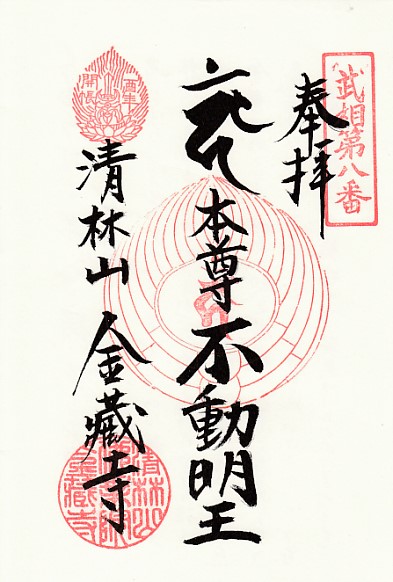 武相第八番
奉拝
本尊不動明王
酉年
開帳
清林山
金藏寺
清林山
金藏寺